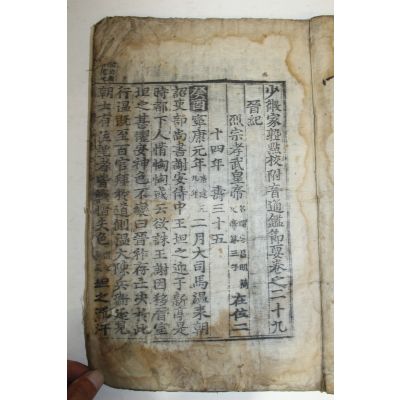 少微家塾點校附音通鑑節要卷之二十九
晉紀
烈宗孝武皇帝 在位二
十四年 壽三十五
癸酉 寧康元年 二月大司馬溫來朝
詔吏部尚書謝安侍中王坦之迎于新亭是
時都下人情恟恟或云欲誅王謝因移晉室
坦之甚懼安神色不變曰晉祚存亡決於此
行溫旣至百官拜於道側溫大陳兵衛延見
朝士有位望者皆 失色 坦之流汗